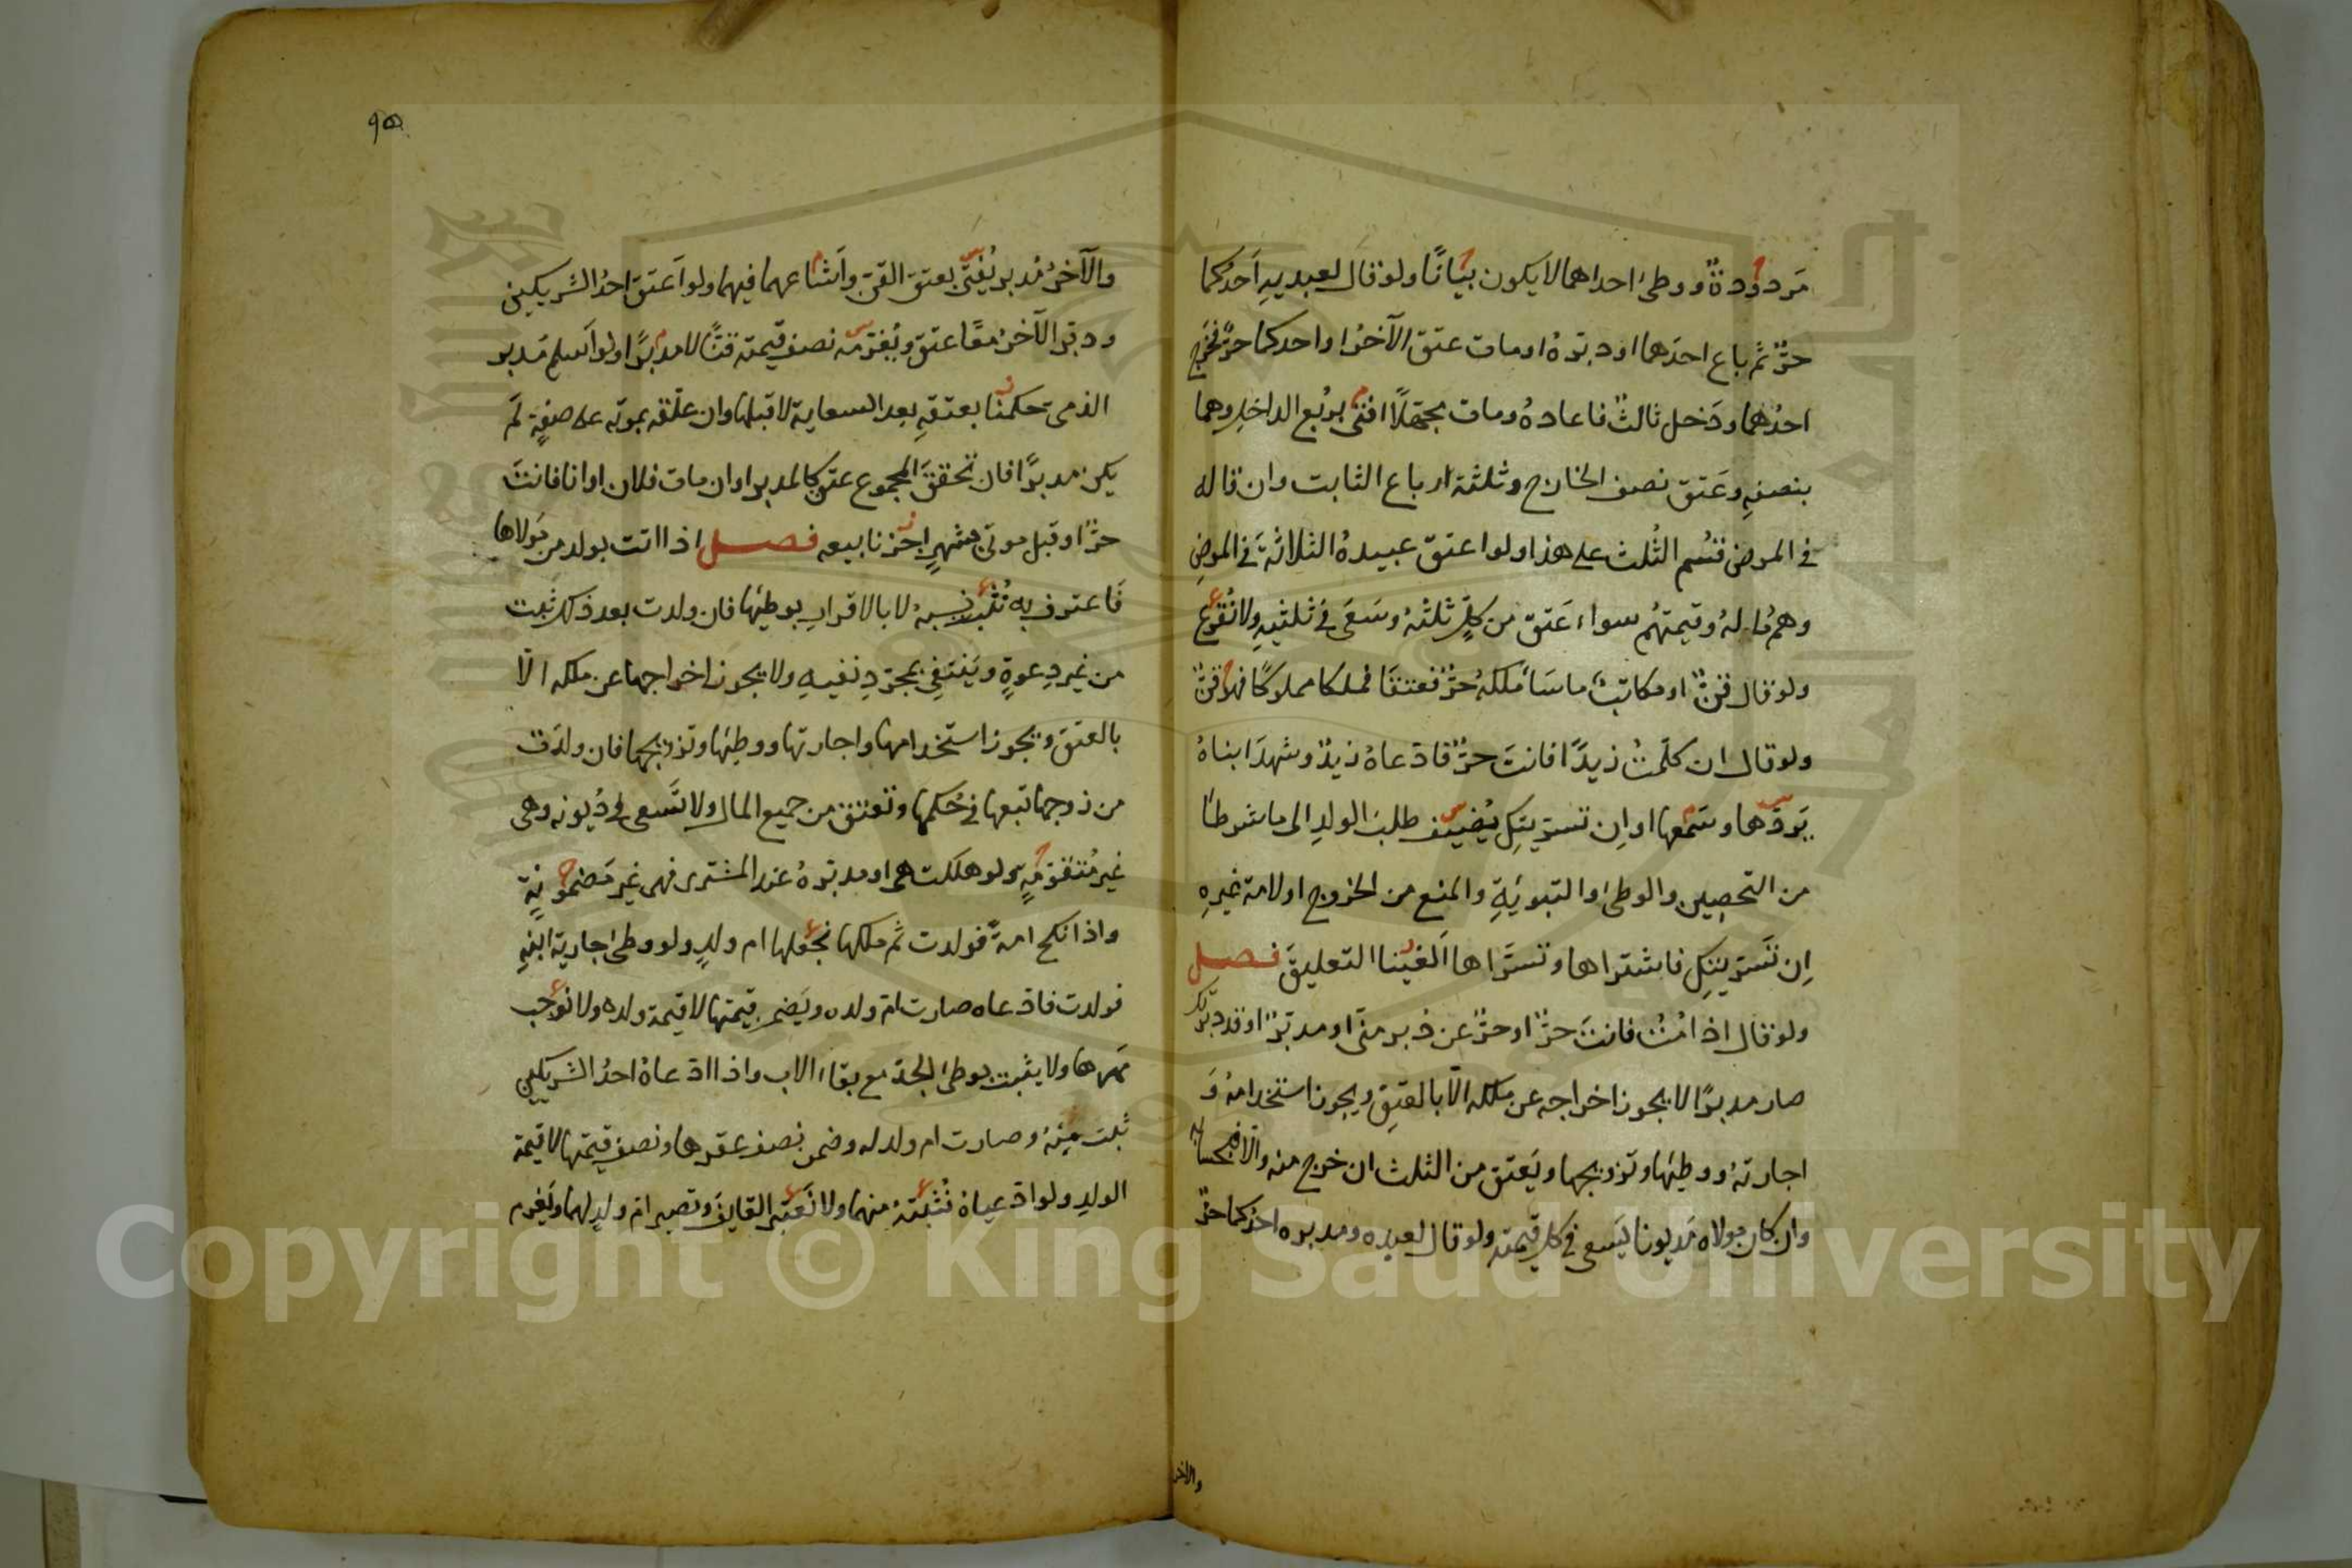 مَردودةٌ ووطئ احداهما لا يكون بيانًا ولو قال لعبديه احدكما
حرٌّ ثم باع احدَهما او دبّره او مات عتق الآخرُ او احدكما حرٌّ فخرج
احدُهما ودَخل ثالثٌ فاعاده ومات مجهلًا افتى بربُع الداخلِ وهما
بنصفِه وعَتق نصف الخارج وثلثة ارباع الثابت وان قاله
في المرض قُسّم الثُلث على هذا ولو اعتق عبيدهُ الثلاثة في المرضِ
وهم مالهُ وقيمتهُم سواء عَتق من كلٍّ ثلثهُ وسَعَى في ثلثيهِ ولا نُقرع
ولو قال قنٌّ او مكاتبٌ ما سَأملكهُ حرٌّ فعتقَا فملكا مملوكًا فهو قنٌّ
ولو قال ان كلّمتُ زيدًا فانتَ حرٌّ فادّعاهُ زيدٌ وشهدَ ابناهُ
يَردّها وسَمعها او اِن تسريتكِ يُضيف طلب الولدِ الى ما شرطا
من التحصين والوطئ والتبوئةِ والمنع من الخروج او لامة غيرهِ
اِن تَسريتكِ فاشتراها وتسرّاها اَلغينا التعليقَ فصل
ولو قال اذا مُتُّ فانتَ حرٌّ او حرٌّ عن دُبر منّى او مدبّرٌ او قد دبّرتك
صار مدبرًا لا يجوز اخراجه عن ملكه الّا بالعتقِ ويجوز استخدامهُ وَ
اجارتهُ ووطيها وتزويجها ويَعتق من الثلث ان خرج منه والّا فبحسابه
وان كان مولاه مَديونا يَسعى في كل قيمته ولو قال لعبده ومدبره احدكما حرٌّ
والاخر
٩٥
والآخرُ مُدبر يُفتى بعتق القنّ واشاعهما فيهما ولو اَعتق احدُ الشريكين
ودبّر الآخرُ معًا عتق ويُغرّمه نصف قيمته قنًّا لا مدبرًا ولو اَسلم مُدبر
الذمى حكمنا بعتقهِ بعد السعاية لا قبلها وان علّقه بموته على صفةٍ لم
يكن مدبرًا فان تحققَ المجموع عتق كالمدبر او ان مات فلان او انا فانتَ
حرٌّ او قبل موتى بشهرٍ اجزنا بيعه فصل اذا اتت بولد من مَولاها
فَاعترف به نُثبت نسبهُ لا بالاقرارِ بوطئها فان ولدت بعد ذلك ثبت
من غير دِعوةٍ ويَنتفي بمجرّدِ نفيهِ ولا يجوز اخراجها عن ملكه الّا
بالعتق ويجوز استخدامها واجارتها ووطئها وتزويجها فان ولدَت
من زوجها تبعها في حُكمها وتعتق من جميع المال ولا تَسعى في دُيونه وهى
غير مُتقوّمةٍ ولو هلكت هى او مدبّرهُ عند المشترى فهى غير مَضمونةٍ
واذا نكح امةً فولدت ثم ملكها نجعلها ام ولدٍ ولو وطئ جارية ابنهِ
فولدت فادّعاه صارت امّ ولده ويَضمن قيمتها لا قيمة ولده ولا نوجب
مَهرها ولا يثبت بوطئ الجدّ مع بقاء الاب واذا ادّعاهُ احدُ الشريكين
ثبت مِنهُ وصارت ام ولد له وضمن نصف عقرها ونصف قيمتها لا قيمة
الولدِ ولو ادّعياهُ نُثبتهُ منهما ولا نَعتبر القايفَ وتصير امّ ولدٍ لهما ويَغرم
Copyright © King Saud University